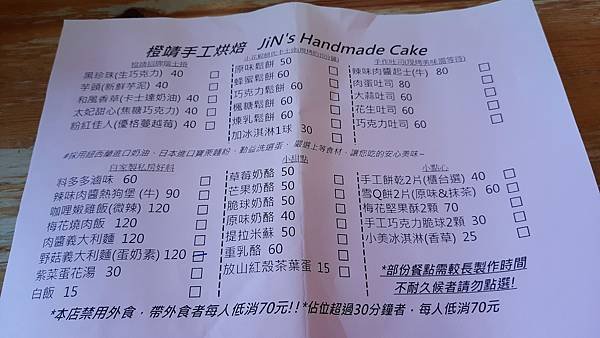 橙靖手工烘焙 JiN's Handmade Cake
黑珍珠(生巧克力) 40
芋頭(新鮮芋泥) 40
和風香草(卡士達奶油) 40
太妃甜心(焦糖巧克力) 40
粉紅佳人(優格蔓越莓) 40
原味鬆餅 50
蜂蜜鬆餅 60
巧克力鬆餅 60
楓糖鬆餅 60
煉乳鬆餅 60
加冰淇淋1球 30
辣味肉醬起士(牛) 80
肉蛋吐司 80
大蒜吐司 60
花生吐司 60
巧克力吐司 60
#採用紐西蘭進口奶油、日本進口寶栗麵粉、動益洗選蛋、嚴選上等食材，讓您吃的安心美味~
自家製私房好料
科多多滷味 60
辣味肉醬熱狗堡(牛) 90
咖哩嫩雞飯(微辣) 120
梅花燒肉飯 120
肉醬義大利麵 120
野菇義大利麵(蛋奶素) 120
紫菜蛋花湯 30
白飯 15
小甜點
草莓奶酪 50
芒果奶酪 50
脆球奶酪 50
原味奶酪 40
提拉米蘇 50
重乳酪 60
放山紅殼茶葉蛋 15
小點心
手工餅乾2片(櫃台選) 40
雪Q餅2片(原味&抹茶) 60
梅花堅果酥2顆 70
手工巧克力脆球2顆 30
小美冰淇淋(香草) 25
*部份餐點需較長製作時間
不耐久候者請勿點選!
*本店禁用外食，帶外食者每人低消70元!!*佔位超過30分鐘者，每人低消70元